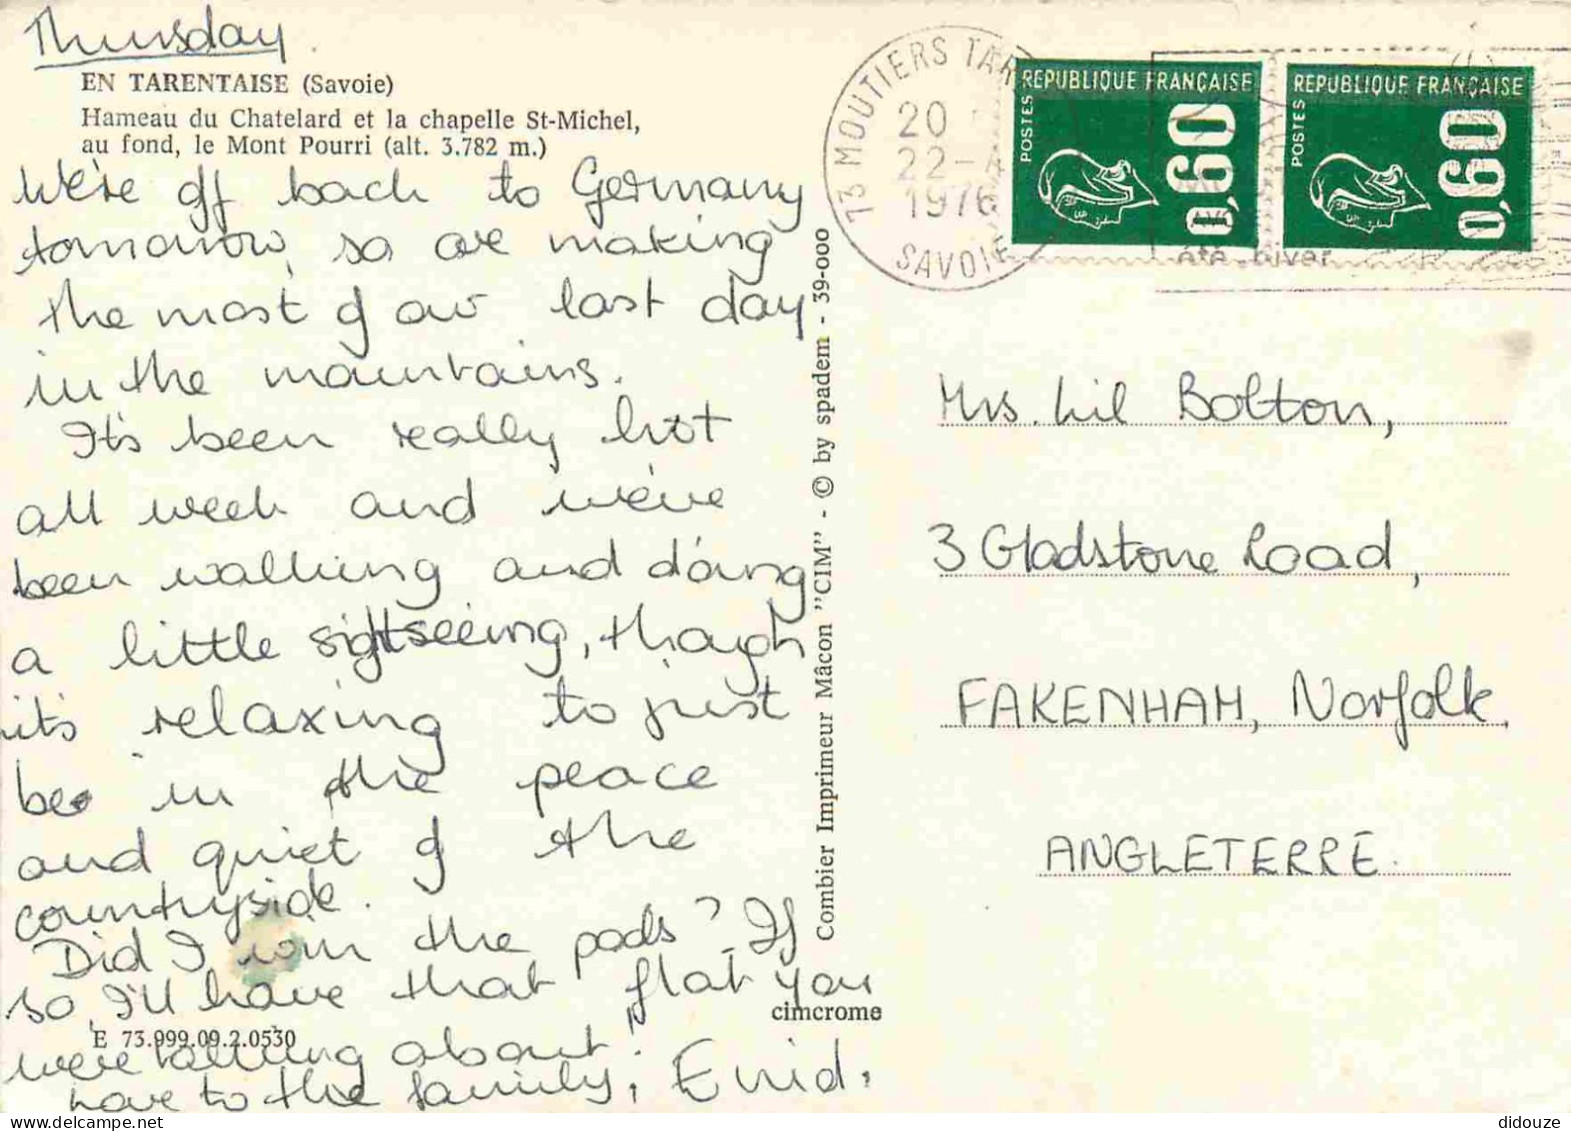 Thursday.
EN TARENTAISE (Savoie)
Hameau du Chatelard et la chapelle St-Michel,
au fond, le Mont Pourri (alt. 3.782 m.)
We're off back to Germany
tomorrow, so are making
the most of our last day
in the mountains.
It's been really hot
all week and we've
been walking and doing
a little sightseeing, though
it's relaxing to just
be in the peace
and quiet of the
countryside.
Did I win the pools? If
so, I'll have that flat you
cimcrome
E 73.999.09.2.0530
were talking about!
love to the family, Enid.
Combier Imprimeur Mâcon "CIM" - © by spadem - 39-000
73 MOUTIERS TAR
20
22-
1976
SAVOIE
REPUBLIQUE FRANÇAISE
POSTES
0,60
REPUBLIQUE FRANÇAISE
POSTES
0,60
été hiver
Mrs. Lil Bolton,
3 Gladstone Road,
FAKENHAM, Norfolk,
ANGLETERRE.
didouze